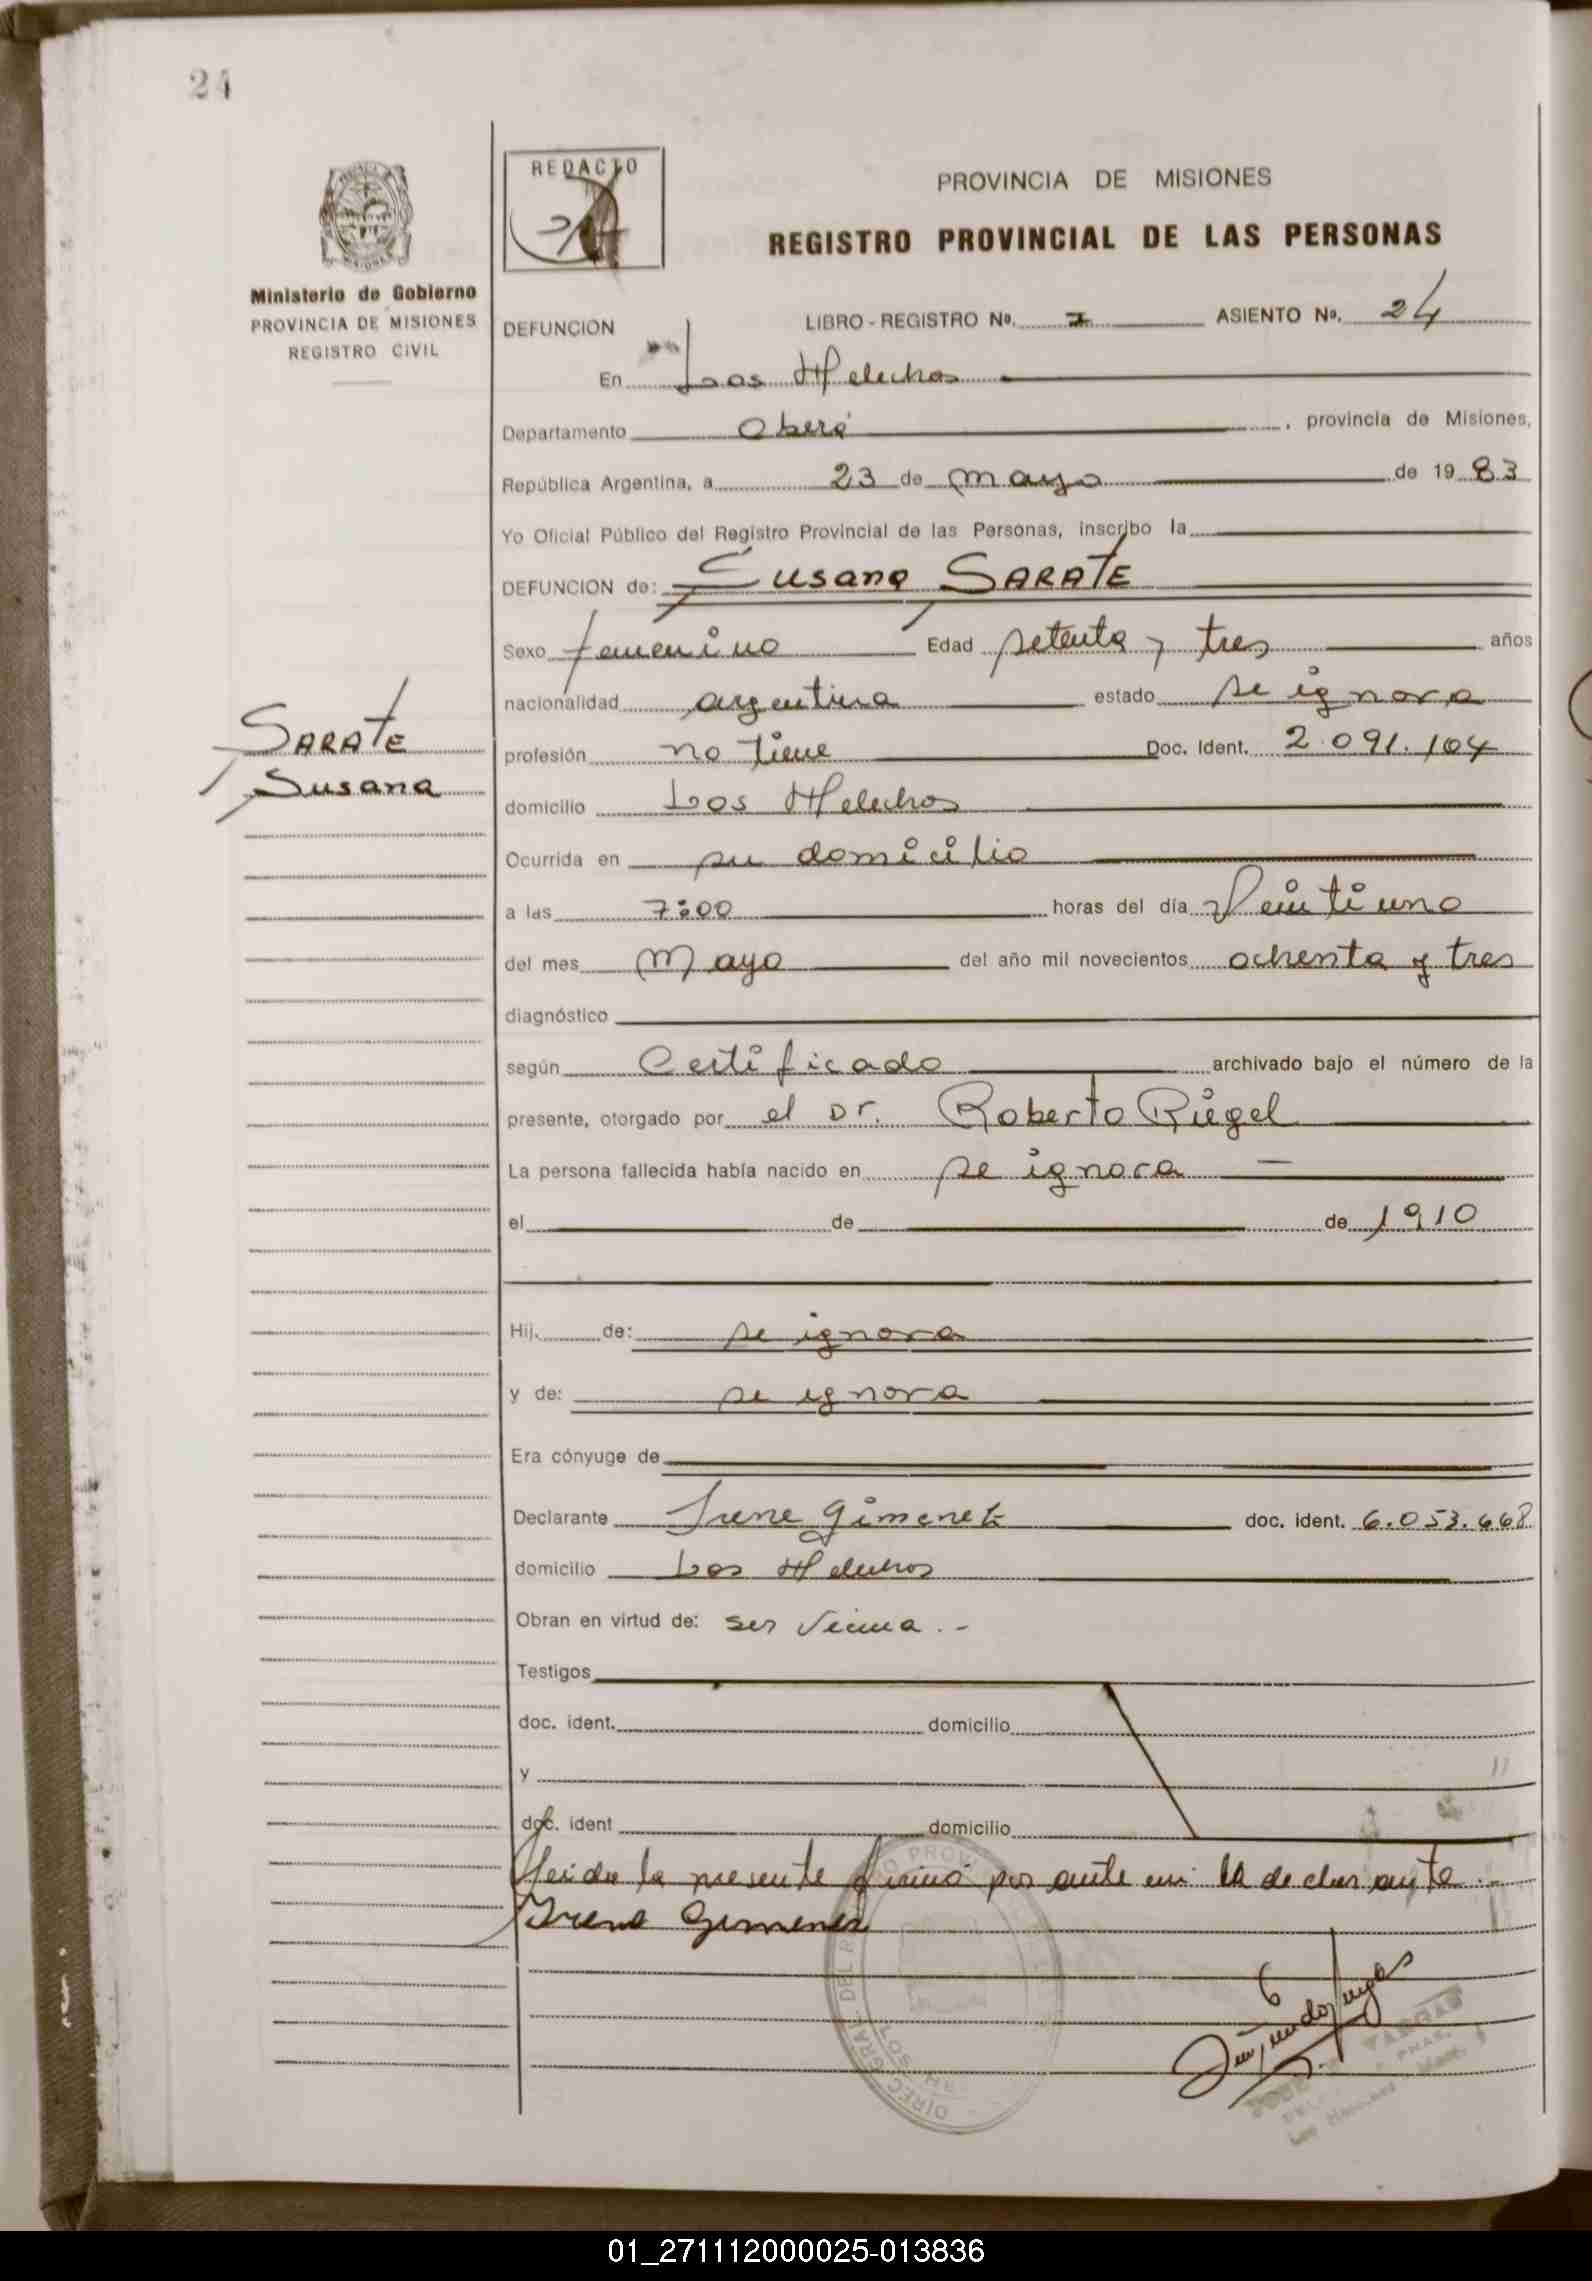 24
REDACTO
PROVINCIA DE MISIONES
REGISTRO PROVINCIAL DE LAS PERSONAS
Ministerio de Gobierno
PROVINCIA DE MISIONES
REGISTRO CIVIL
DEFUNCION LIBRO - REGISTRO Nº. ASIENTO Nº. 24
En Los Helechos
Departamento Oberá, provincia de Misiones,
República Argentina, a 23 de mayo de 1983
Yo Oficial Público del Registro Provincial de las Personas, inscribo la
DEFUNCION de: Susana SARATE
Sexo femenino Edad setenta y tres años
nacionalidad argentina estado se ignora
SARATE
Susana
profesión no tiene Doc. Ident. 2.091.104
domicilio Los Helechos
Ocurrida en su domicilio
a las 7:00 horas del día Veintiuno
del mes Mayo del año mil novecientos ochenta y tres
diagnóstico
según Certificado archivado bajo el número de la
presente, otorgado por el Dr. Roberto Riegel
La persona fallecida había nacido en se ignora —
el de de 1910
Hij. de: se ignora
y de: se ignora
Era cónyuge de
Declarante Irene Gimenez doc. ident. 6.053.668
domicilio Los Helechos
Obran en virtud de: ser vecina .-
Testigos
doc. ident. domicilio
y
doc. ident domicilio
Leída la presente firmó por ante mi la declarante.-
Irene Gimenez
VARGAS
01_271112000025-013836